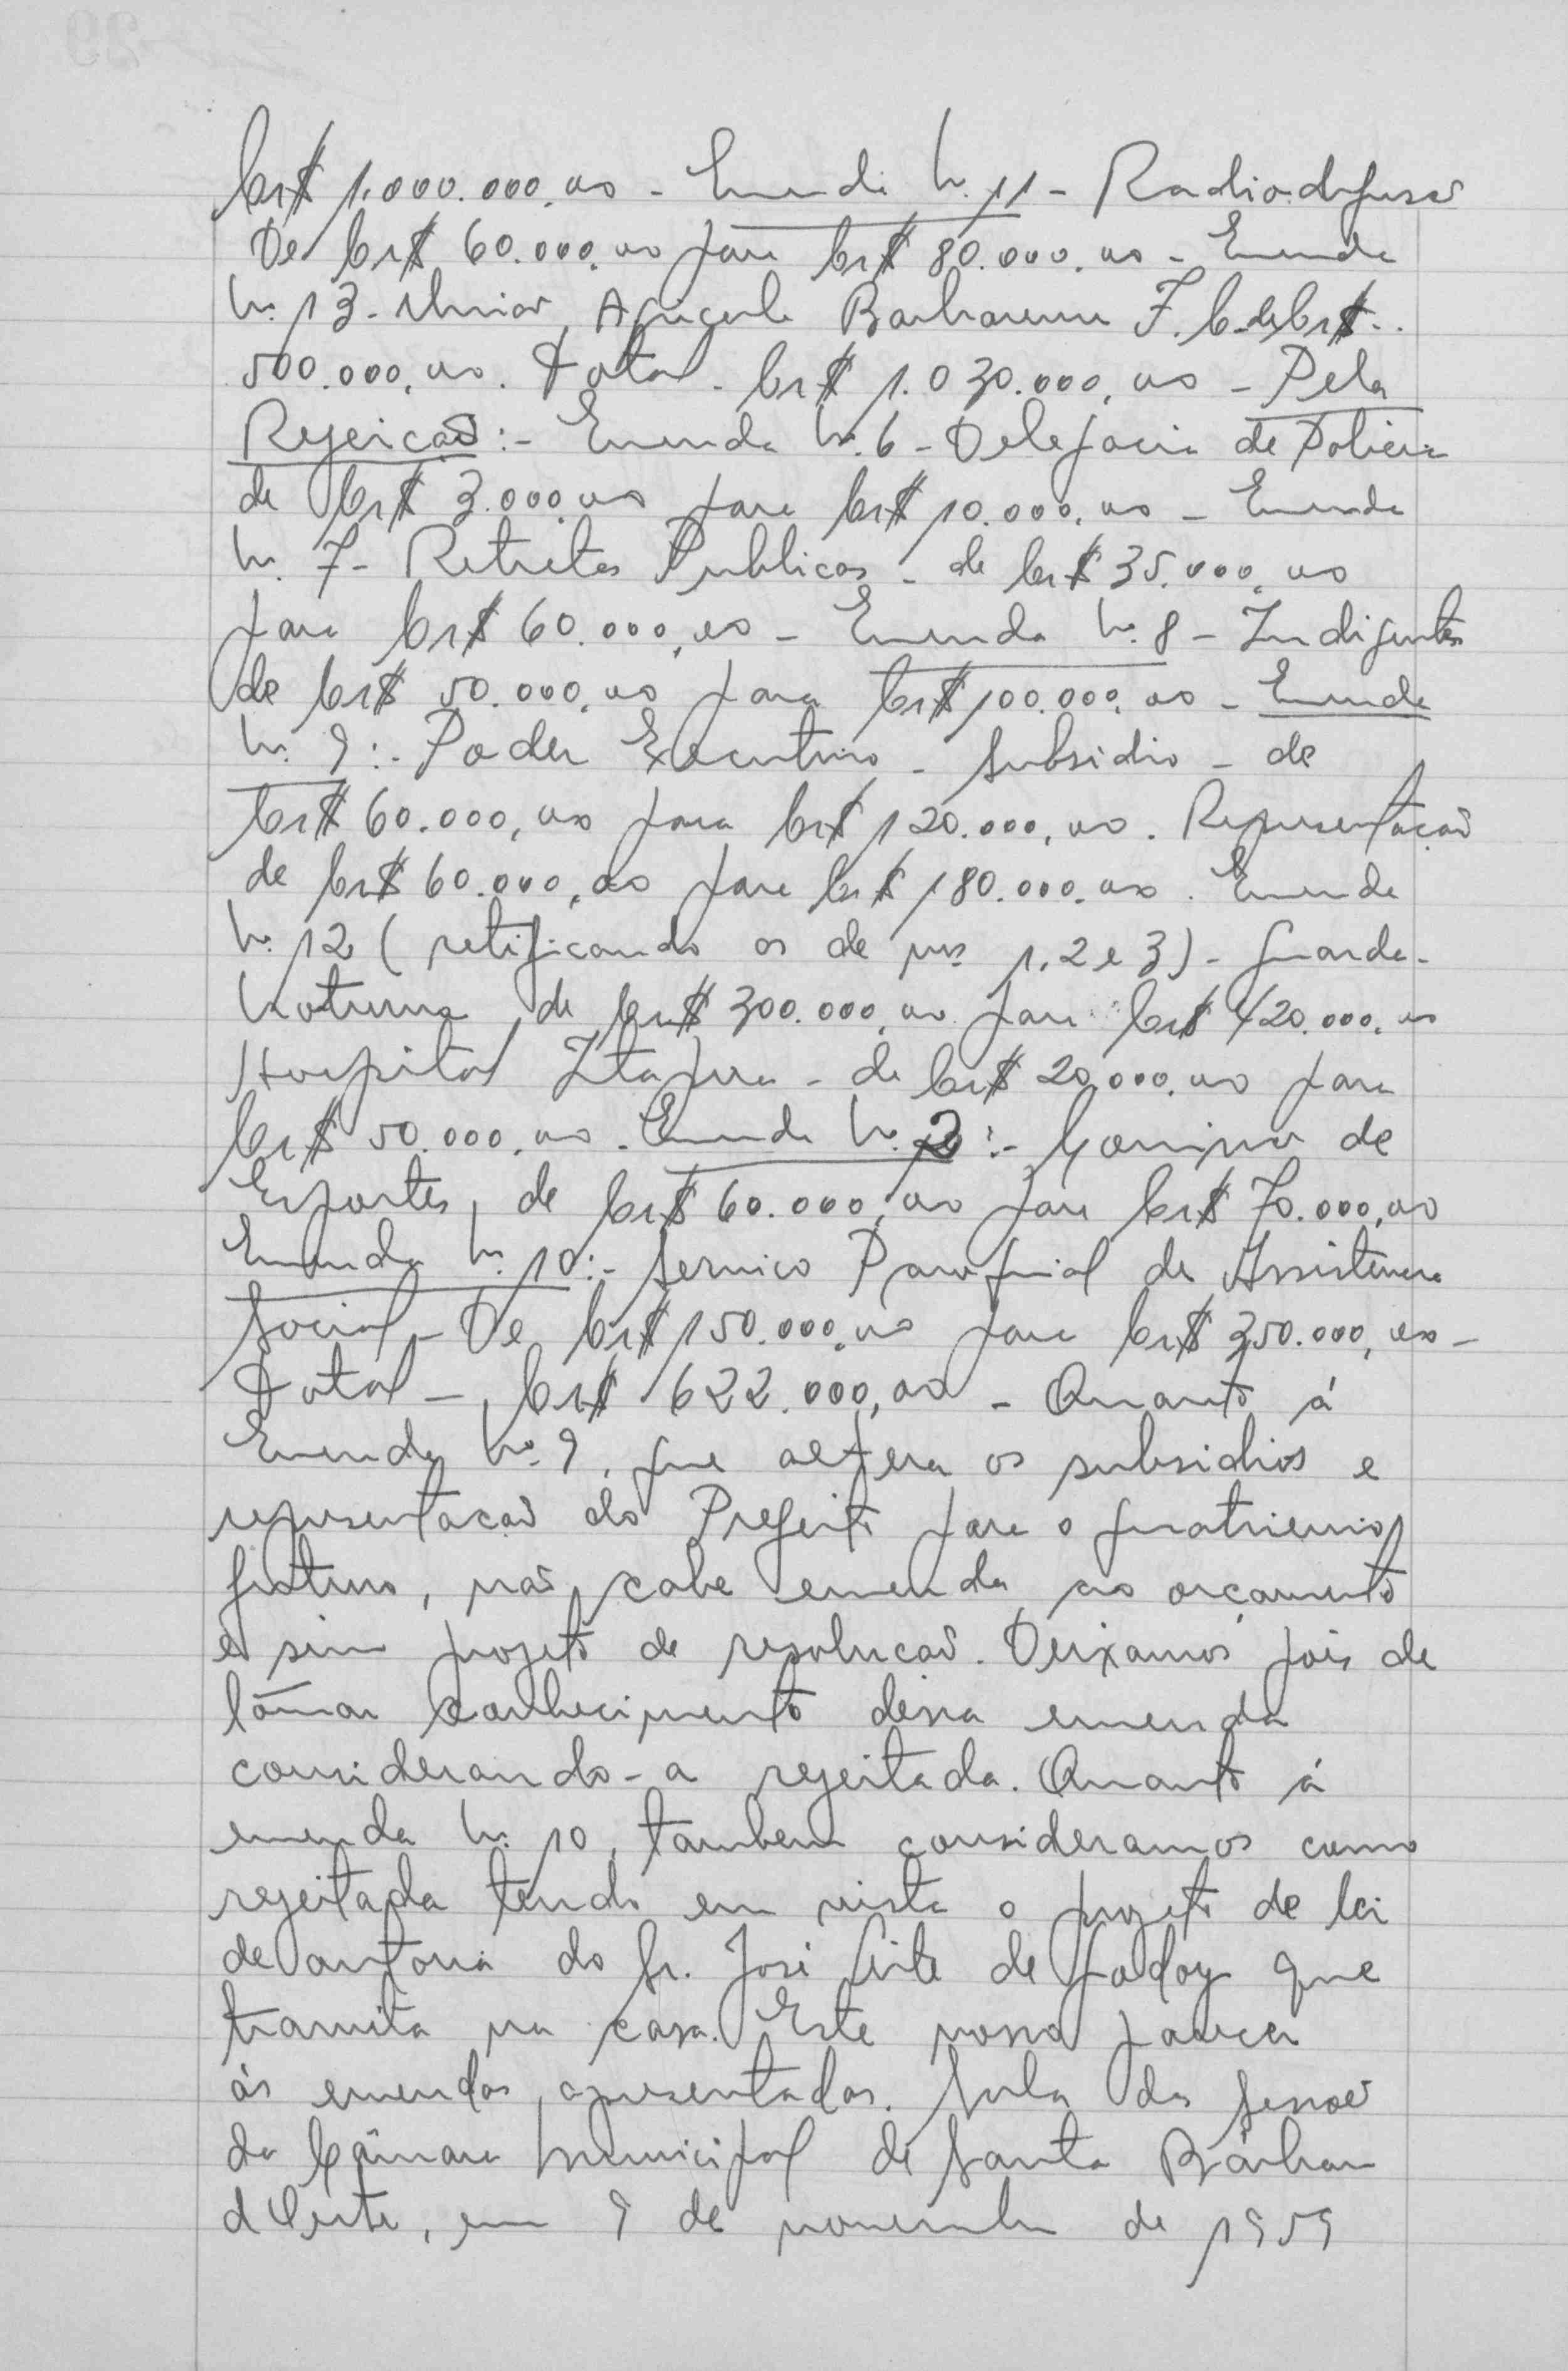 Cr$ 1.000.000,00 - Emenda No. 11 - Radiodifusão
De Cr$ 60.000,00 para Cr$ 80.000,00 - Emenda
No. 13 - União Agricola Barbarense F.C. de Cr$..
500.000,00. Total - Cr$ 1.030.000,00 - Pela
Rejeicão:- Emenda No. 6 - Delegacia de Policia
de Cr$ 3.000,00 para Cr$ 10.000,00 - Emenda
No. 7 - Retretas Publicas - de Cr$ 35.000,00
para Cr$ 60.000,00 - Emenda No. 8 - Indigentes
de Cr$ 50.000,00 para Cr$ 100.000,00 - Emenda
No. 9:- Poder Executivo - Subsidio - de
Cr$ 60.000,00 para Cr$ 120.000,00. Representação
de Cr$ 60.000,00 para Cr$ 180.000,00. Emenda
No. 12 (retificando as de nos. 1, 2 e 3) - Guarda-
Noturna de Cr$ 300.000,00 para Cr$ 420.000,00
Hospital Itapira - de Cr$ 20.000,00 para
Cr$ 50.000,00. Emenda No. 2:- Comissão de
Esportes, de Cr$ 60.000,00 para Cr$ 70.000,00
Emenda No. 10:- Servico Paroquial de Assistencia
Social - De Cr$ 150.000,00 para Cr$ 350.000,00 -
Total - Cr$ 622.000,00 - Quanto á
Emenda No. 9, que altera os subsidios e
representacão do Prefeito para o quatrienio
futuro, não cabe emenda ao orçamento
e sim projeto de resolucão. Deixamos pois de
tomar conhecimento dessa emenda
considerando-a rejeitada. Quanto á
emenda No. 10, tambem consideramos como
rejeitada tendo em vista o projeto de lei
de autoria do Sr. José Leite de Godoy que
tramita na casa. Este nosso parecer
ás emendas apresentadas. Sala da Sessão
da Câmara Municipal de Santa Bárbara
d'Oeste, em 9 de novembro de 1959